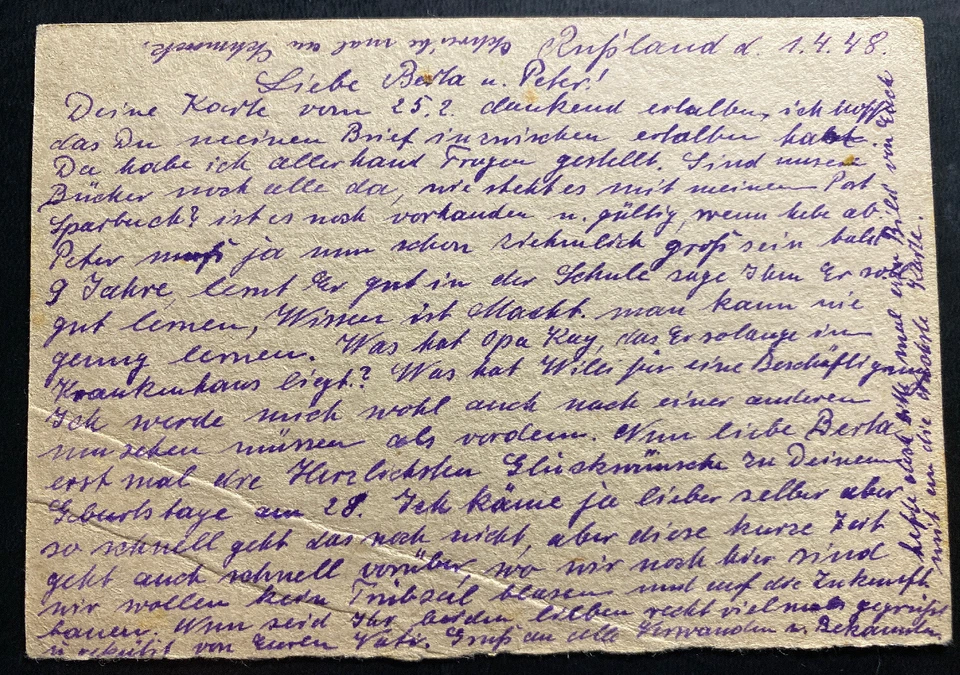 Schreibe mal an Schmuck.
Rußland d. 1.4.48.
Liebe Berta u. Peter!
Deine Karte vom 25.2. dankend erhalten, ich hoff
das Du meinen Brief inzwischen erhalten hast
Da habe ich allerhand Fragen gestellt. Sind unsere
Bücher noch alle da, wie steht es mit meinem Post
Sparbuch? ist es noch vorhanden u. gültig, wenn hebe ab
Peter muß ja nun schon ziehmlich groß sein bald
9 Jahre, lernt Er gut in der Schule sage Ihm Er soll
gut lernen, Wissen ist Macht. man kann nie
genug lernen. Was hat Opa Kay, das Er solange im
Krankenhaus liegt? Was hat Willi für eine Beschäftigung
Ich werde mich wohl auch nach einer anderen
umsehen müssen als vordem. Nun liebe Berta
erst mal die Herzlichsten Glückwünsche zu Deinem
Geburtstage am 28. Ich käme ja lieber selber aber
so schnell geht das noch nicht, aber diese kurze Zeit
geht auch schnell vorüber, wo wir noch hier sind
wir wollen kein Trübsal blasen und auf die Zukunft
bauen. Nun seid Ihr beiden lieben recht vielmals gegrüßt
u. geküßt von Euren Vati. Gruß an alle Verwanden u. Bekannten
hefte doch bitte mal ein Bild von Euch
mit an die Karte.